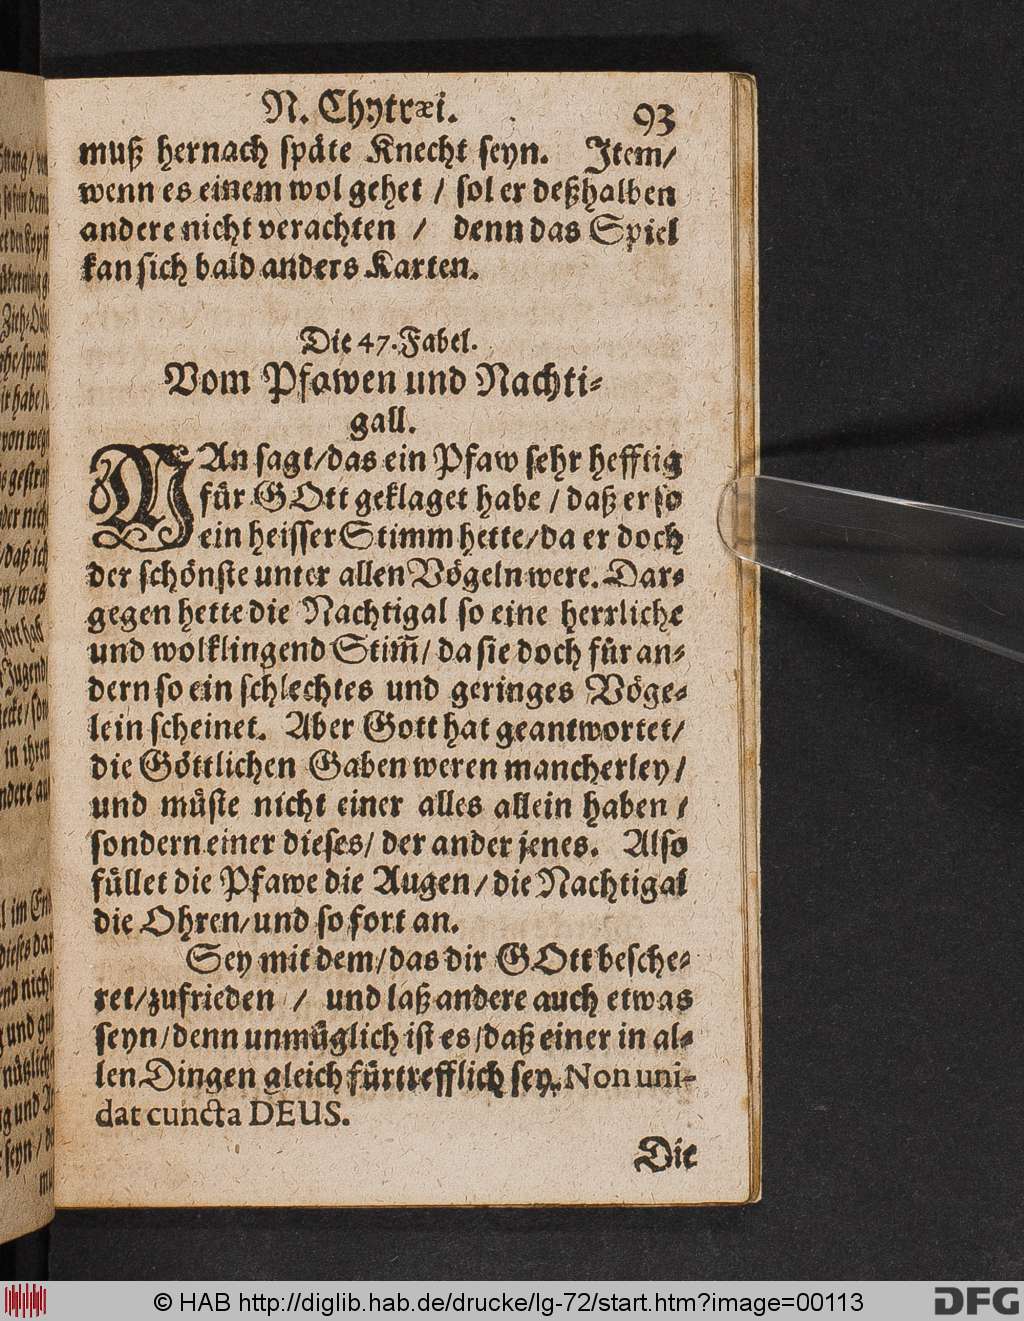 N. Chytræi. 93
muß hernach späte Knecht seyn. Item/
wenn es einem wol gehet / sol er deßhalben
andere nicht verachten / denn das Spiel
kan sich bald anders Karten.
Die 47. Fabel.
Vom Pfawen und Nachti-
gall.
MAn sagt/das ein Pfaw sehr hefftig
für GOtt geklaget habe / daß er so
ein heisser Stimm hette/da er doch
der schönste unter allen Vögeln were. Dar-
gegen hette die Nachtigal so eine herrliche
und wolklingend Stim̃/ da sie doch für an-
dern so ein schlechtes und geringes Vöge-
lein scheinet. Aber Gott hat geantwortet/
die Göttlichen Gaben weren mancherley/
und müste nicht einer alles allein haben /
sondern einer dieses/ der ander jenes. Also
füllet die Pfawe die Augen/die Nachtigal
die Ohren/und so fort an.
Sey mit dem/das dir GOtt besche-
ret/zufrieden / und laß andere auch etwas
seyn/denn unmüglich ist es/daß einer in al-
len Dingen gleich fürtrefflich sey. Non uni-
dat cuncta DEUS.
Die
© HAB http://diglib.hab.de/drucke/lg-72/start.htm?image=00113
DFG